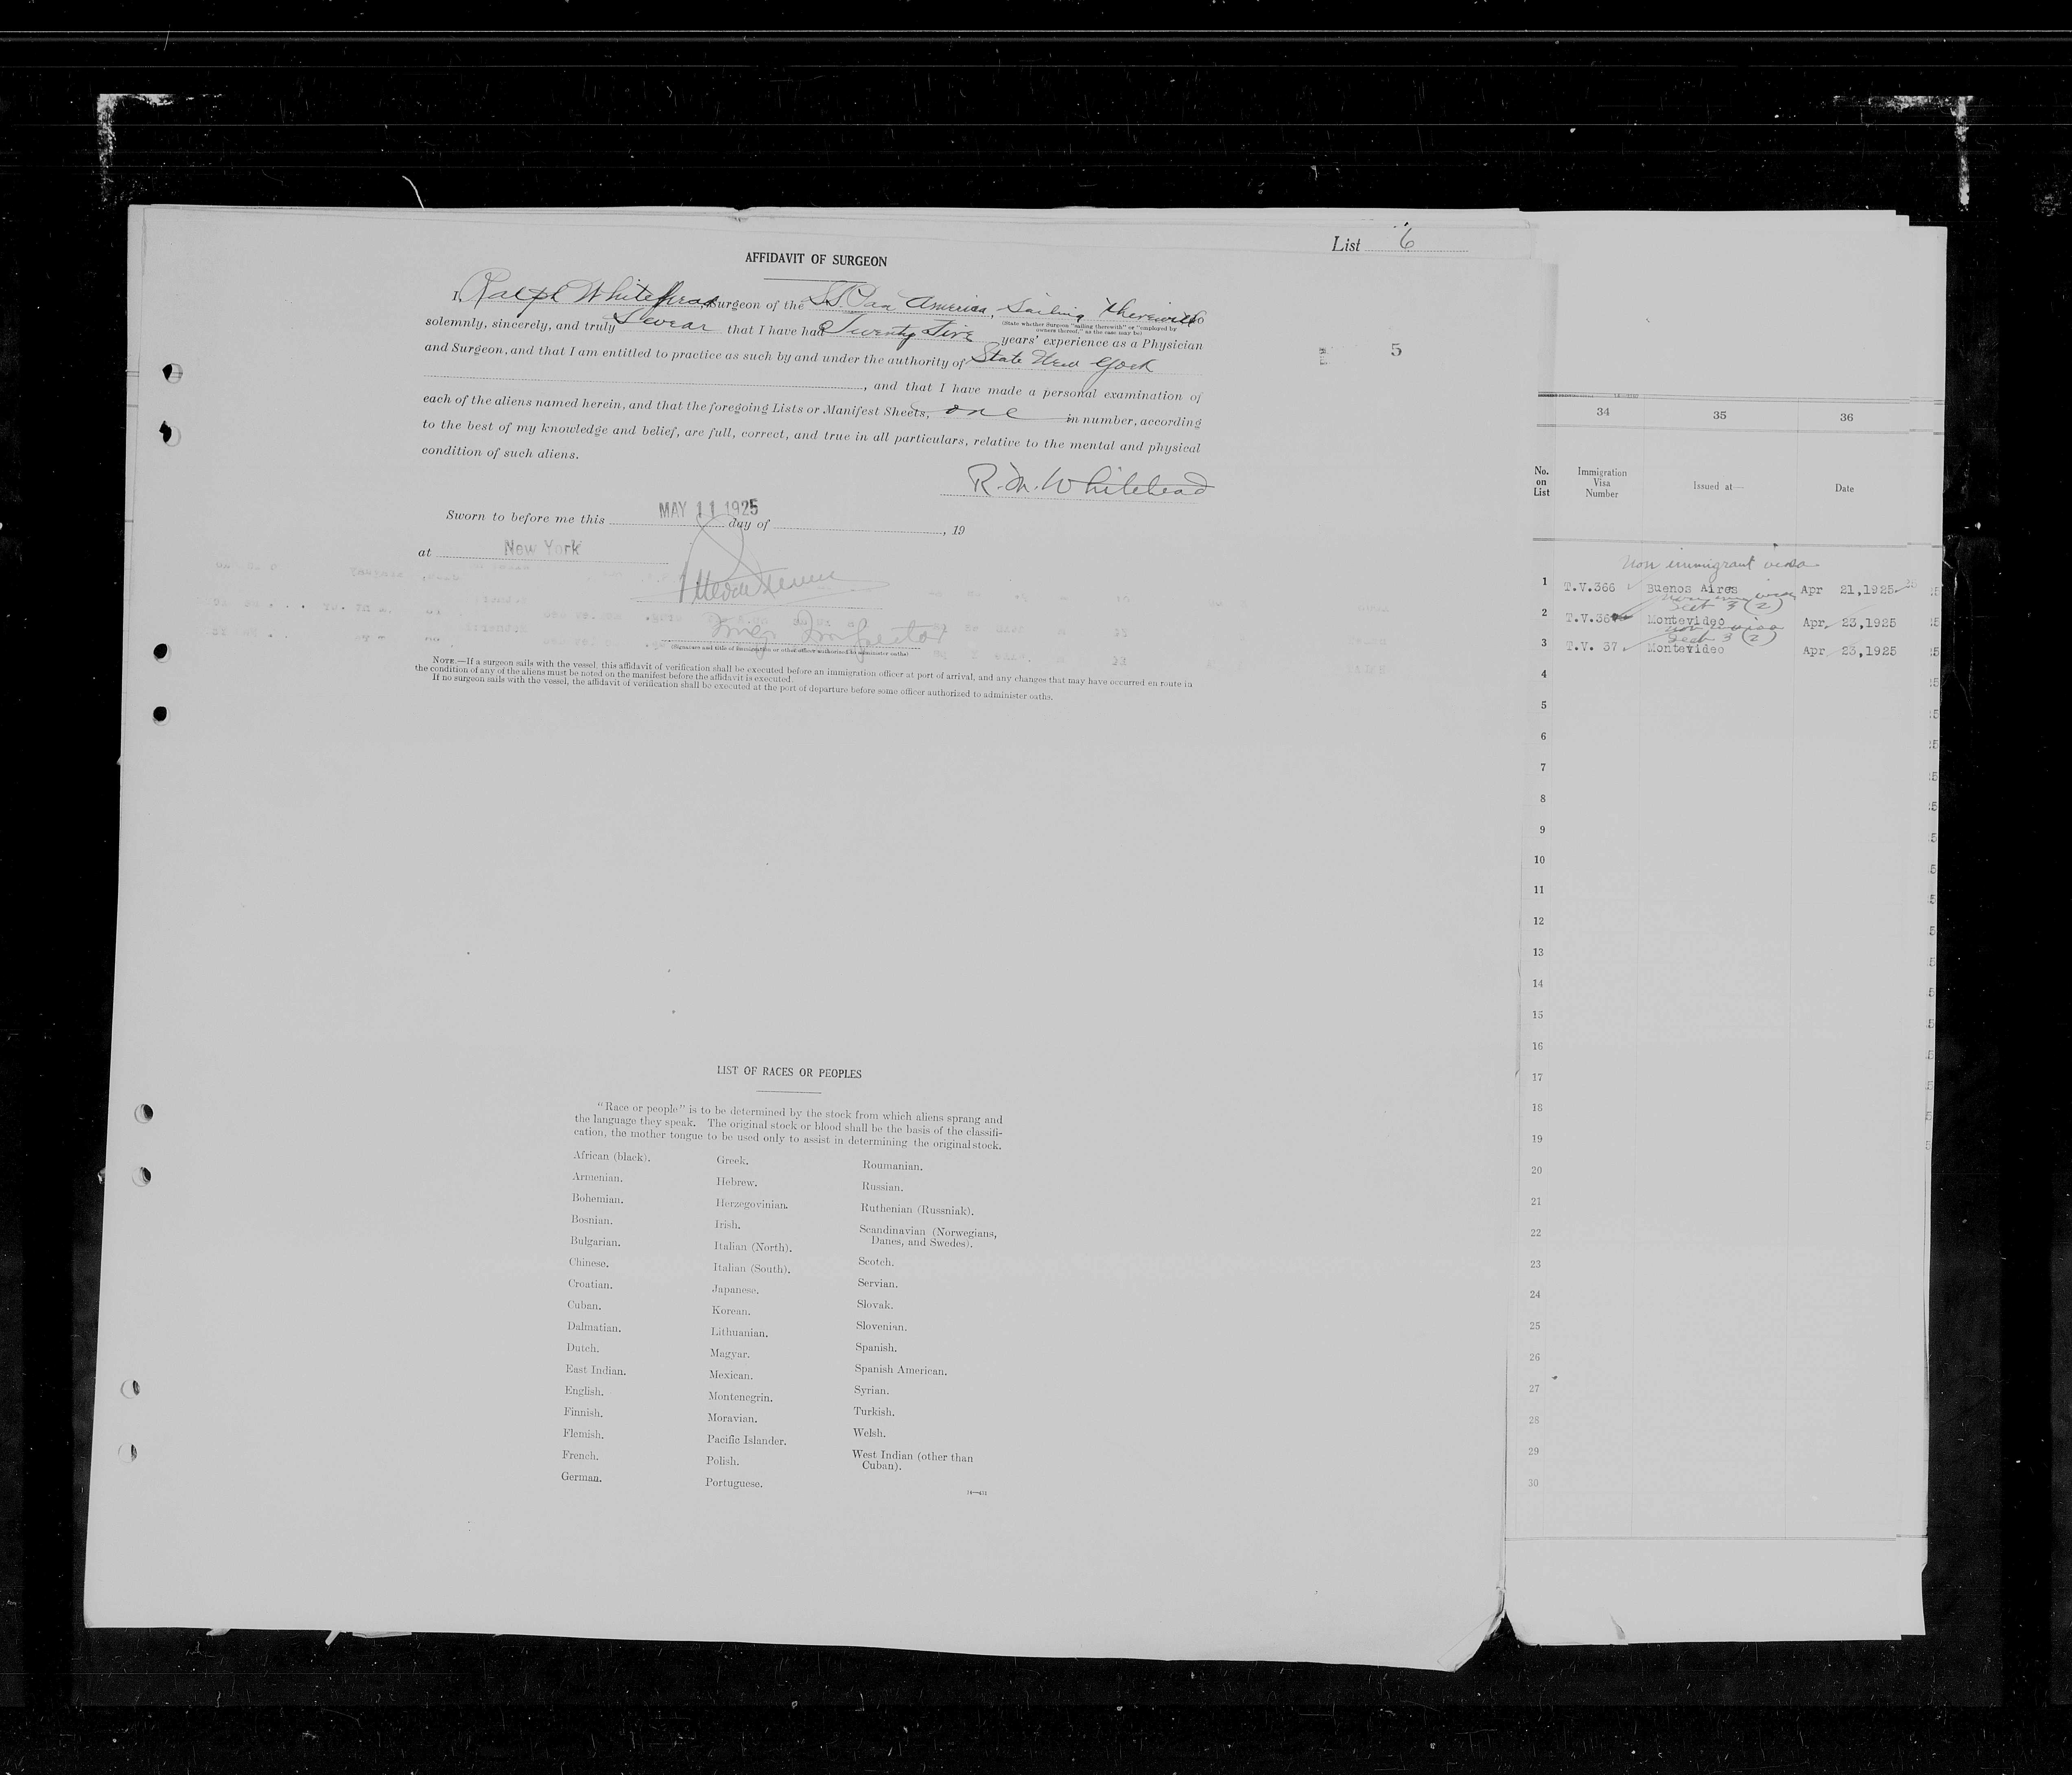 List 6
AFFIDAVIT OF SURGEON
I, Ralph Whitehead, Surgeon of the SS Pan America, Sailing therewith
(State whether Surgeon "sailing therewith" or "employed by
owners thereof," as the case may be)
solemnly, sincerely, and truly Swear that I have had Twenty Five years' experience as a Physician
and Surgeon, and that I am entitled to practice as such by and under the authority of State New York
, and that I have made a personal examination of
each of the aliens named herein, and that the foregoing Lists or Manifest Sheets, one in number, according
to the best of my knowledge and belief, are full, correct, and true in all particulars, relative to the mental and physical
condition of such aliens.
R. M. Whitehead
Sworn to before me this MAY 11 1925 day of , 19
at New York
Inspector
(Signature and title of immigration or other officer authorized to administer oaths)
NOTE.—If a surgeon sails with the vessel, this affidavit of verification shall be executed before an immigration officer at port of arrival, and any changes that may have occurred en route in
the condition of any of the aliens must be noted on the manifest before the affidavit is executed.
If no surgeon sails with the vessel, the affidavit of verification shall be executed at the port of departure before some officer authorized to administer oaths.
5
LIST OF RACES OR PEOPLES
"Race or people" is to be determined by the stock from which aliens sprang and
the language they speak. The original stock or blood shall be the basis of the classifi-
cation, the mother tongue to be used only to assist in determining the original stock.
African (black).
Armenian.
Bohemian.
Bosnian.
Bulgarian.
Chinese.
Croatian.
Cuban.
Dalmatian.
Dutch.
East Indian.
English.
Finnish.
Flemish.
French.
German.
Greek.
Hebrew.
Herzegovinian.
Irish.
Italian (North).
Italian (South).
Japanese.
Korean.
Lithuanian.
Magyar.
Mexican.
Montenegrin.
Moravian.
Pacific Islander.
Polish.
Portuguese.
Roumanian.
Russian.
Ruthenian (Russniak).
Scandinavian (Norwegians,
Danes, and Swedes).
Scotch.
Servian.
Slovak.
Slovenian.
Spanish.
Spanish American.
Syrian.
Turkish.
Welsh.
West Indian (other than
Cuban).
34 35 36
No. on List
Immigration Visa Number
Issued at—
Date
Non immigrant visa
1 T.V.366 Buenos Aires Apr 21,1925
Sect 3 (2)
2 T.V.36 Montevideo Apr 23,1925
Sect 3 (2)
3 T.V. 37 Montevideo Apr 23,1925
4
5
6
7
8
9
10
11
12
13
14
15
16
17
18
19
20
21
22
23
24
25
26
27
28
29
30